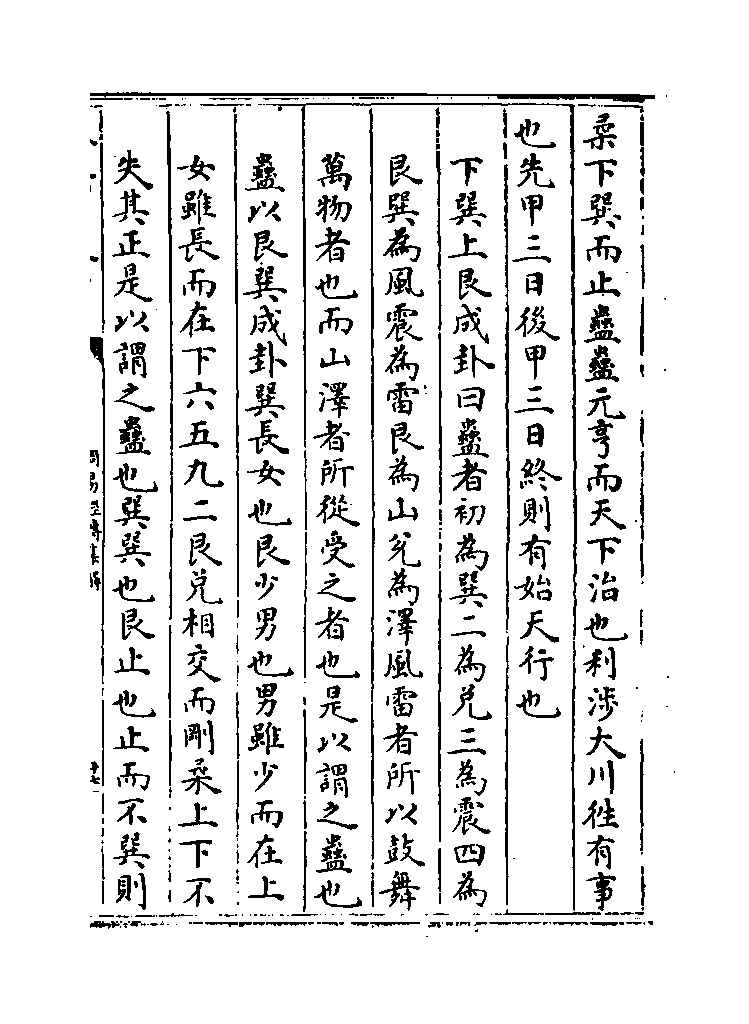 柔下巽而止蠱蠱元亨而天下治也利涉大川徃有事
也先甲三日後甲三日終則有始天行也
下巽上艮成卦曰蠱者初為巽二為兌三為震四為
艮巽為風震為雷艮為山兌為澤風雷者所以鼓舞
萬物者也而山澤者所從受之者也是以謂之蠱也
蠱以艮巽成卦巽長女也艮少男也男雖少而在上
女雖長而在下六五九二艮兌相交而剛柔上下不
失其正是以謂之蠱也巽巽也艮止也止而不巽則
周易經傳集解